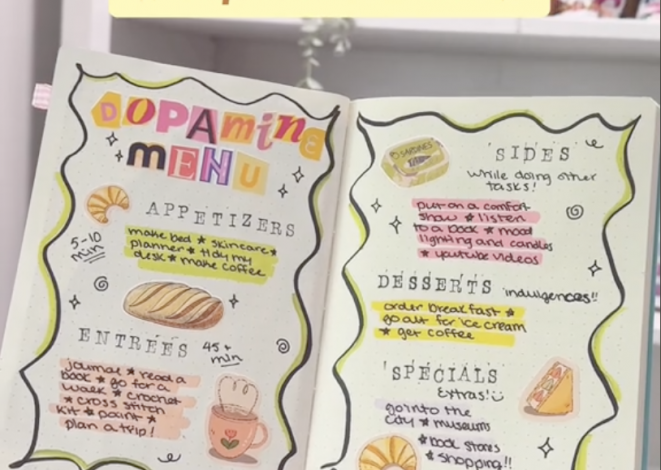 DOPAMINE
MENU
APPETIZERS
5-10
min
make bed ★ skincare ★
planner ★ tidy my
desk ★ make coffee
ENTRÉES 45+
min
journal ★ read a
book ★ go for a
walk ★ crochet
★ cross stitch
kit ★ paint ★
plan a trip!
SARDINES
SIDES
while doing other
tasks!
put on a comfort
show ★ listen
to a book ★ mood
lighting and candles
★ youtube videos
DESSERTS indulgences!!
order breakfast ★
go out for ice cream
★ get coffee
SPECIALS
Extras!
go into the
city ★ museums
★ book stores
★ shopping!!